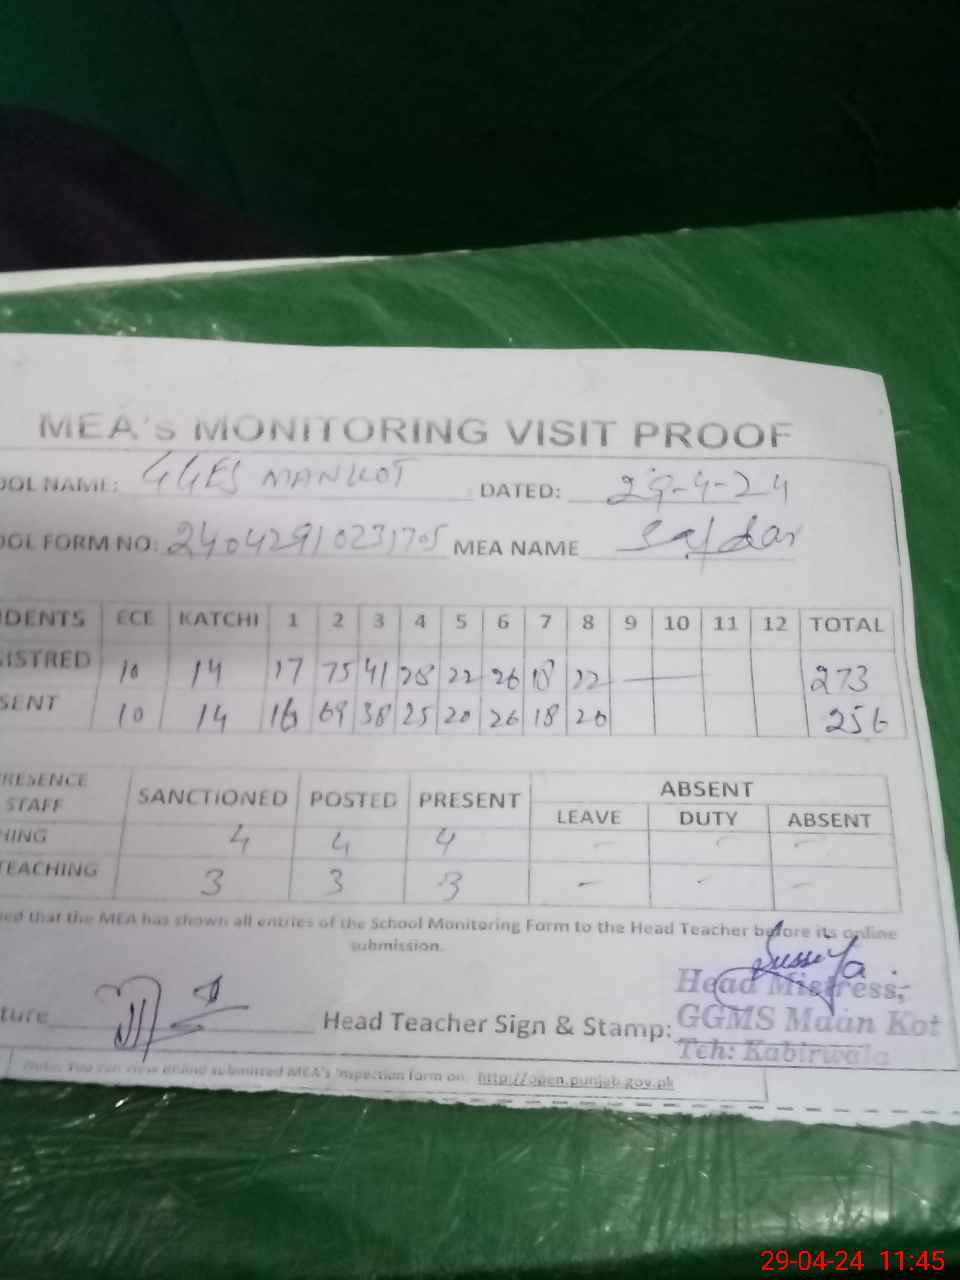 MEA's MONITORING VISIT PROOF
OOL NAME: GGES MANKOT DATED: 29-4-24
OOL FORM NO: 24042910231705 MEA NAME Safdar
DENTS ECE KATCHI 1 2 3 4 5 6 7 8 9 10 11 12 TOTAL
ISTRED 10 14 17 75 41 28 22 26 18 22 — 273
SENT 10 14 16 69 38 25 20 26 18 20 256
RESENCE SANCTIONED POSTED PRESENT ABSENT
STAFF LEAVE DUTY ABSENT
HING 4 4 4 - - -
TEACHING 3 3 3 - - -
ed that the MEA has shown all entries of the School Monitoring Form to the Head Teacher before its online
submission.
Head Mistress,
ture Head Teacher Sign & Stamp: GGMS Maan Kot
Teh: Kabirwala
Note: You can view online submitted MEA's inspection form on: http://open.punjab.gov.pk
29-04-24 11:45